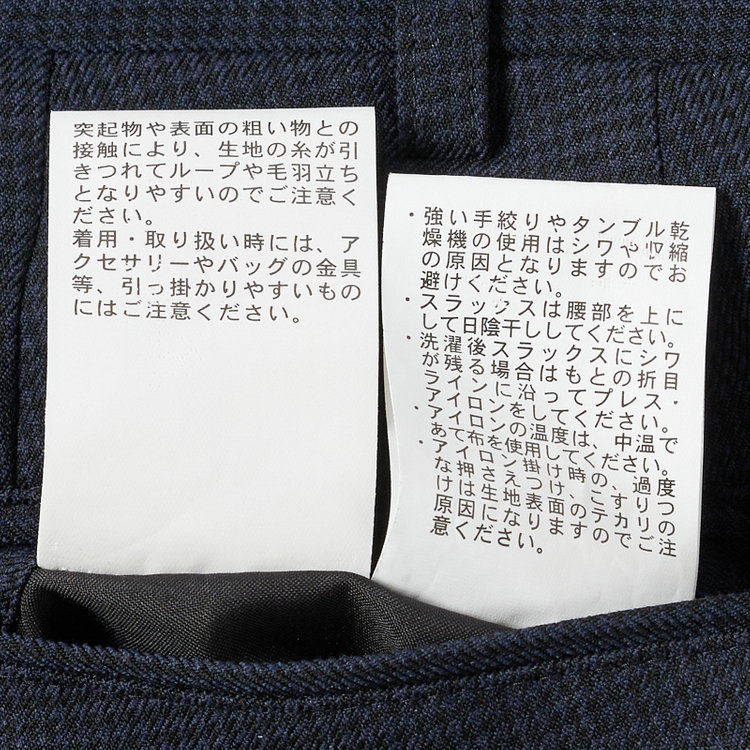 突起物や表面の粗い物との
接触により、生地の糸が引
きつれてループや毛羽立ち
となりやすいのでご注意く
ださい。
着用・取り扱い時には、ア
クセサリーやバッグの金具
等、引っ掛かりやすいもの
にはご注意ください。
・強い手絞りやタンブル乾
燥機の使用はシワや収縮
の原因となりますのでお
避けください。
・スラックスは腰部を上に
して日陰干ししてください。
・洗濯後スラックスにシワ
が残る場合はもとの折目
ラインに沿ってプレス・
アイロンをしてください。
・アイロンの温度は、中温で
あて布を使用してください。
・アイロン掛け時の、過度
な押さえつけ、こすりつ
けは生地表面のテカリの
原因になりますのでご注
意ください。